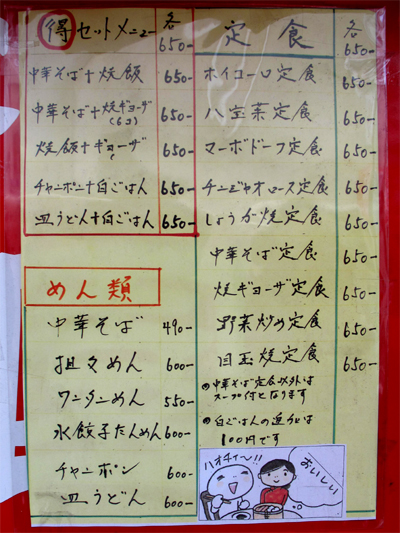 得 セットメニュー 各650-
中華そば+焼飯 650-
中華そば+焼ギョーザ(6コ) 650-
焼飯+ギョーザ 650-
チャンポン+白ごはん 650-
皿うどん+白ごはん 650-
めん類
中華そば 490-
担々めん 600-
ワンタンめん 550-
水餃子たんめん 600-
チャンポン 600-
皿うどん 600-
定食 各650-
ホイコーロ定食 650-
八宝菜定食 650-
マーボドーフ定食 650-
チンジャオロース定食 650-
しょうが焼定食 650-
中華そば定食 650-
焼ギョーザ定食 650-
野菜炒め定食 650-
目玉焼定食 650-
●中華そば定食以外は
スープ付となります
●白ごはんの追加は
100円です
ハオチィ〜!!
おいしい